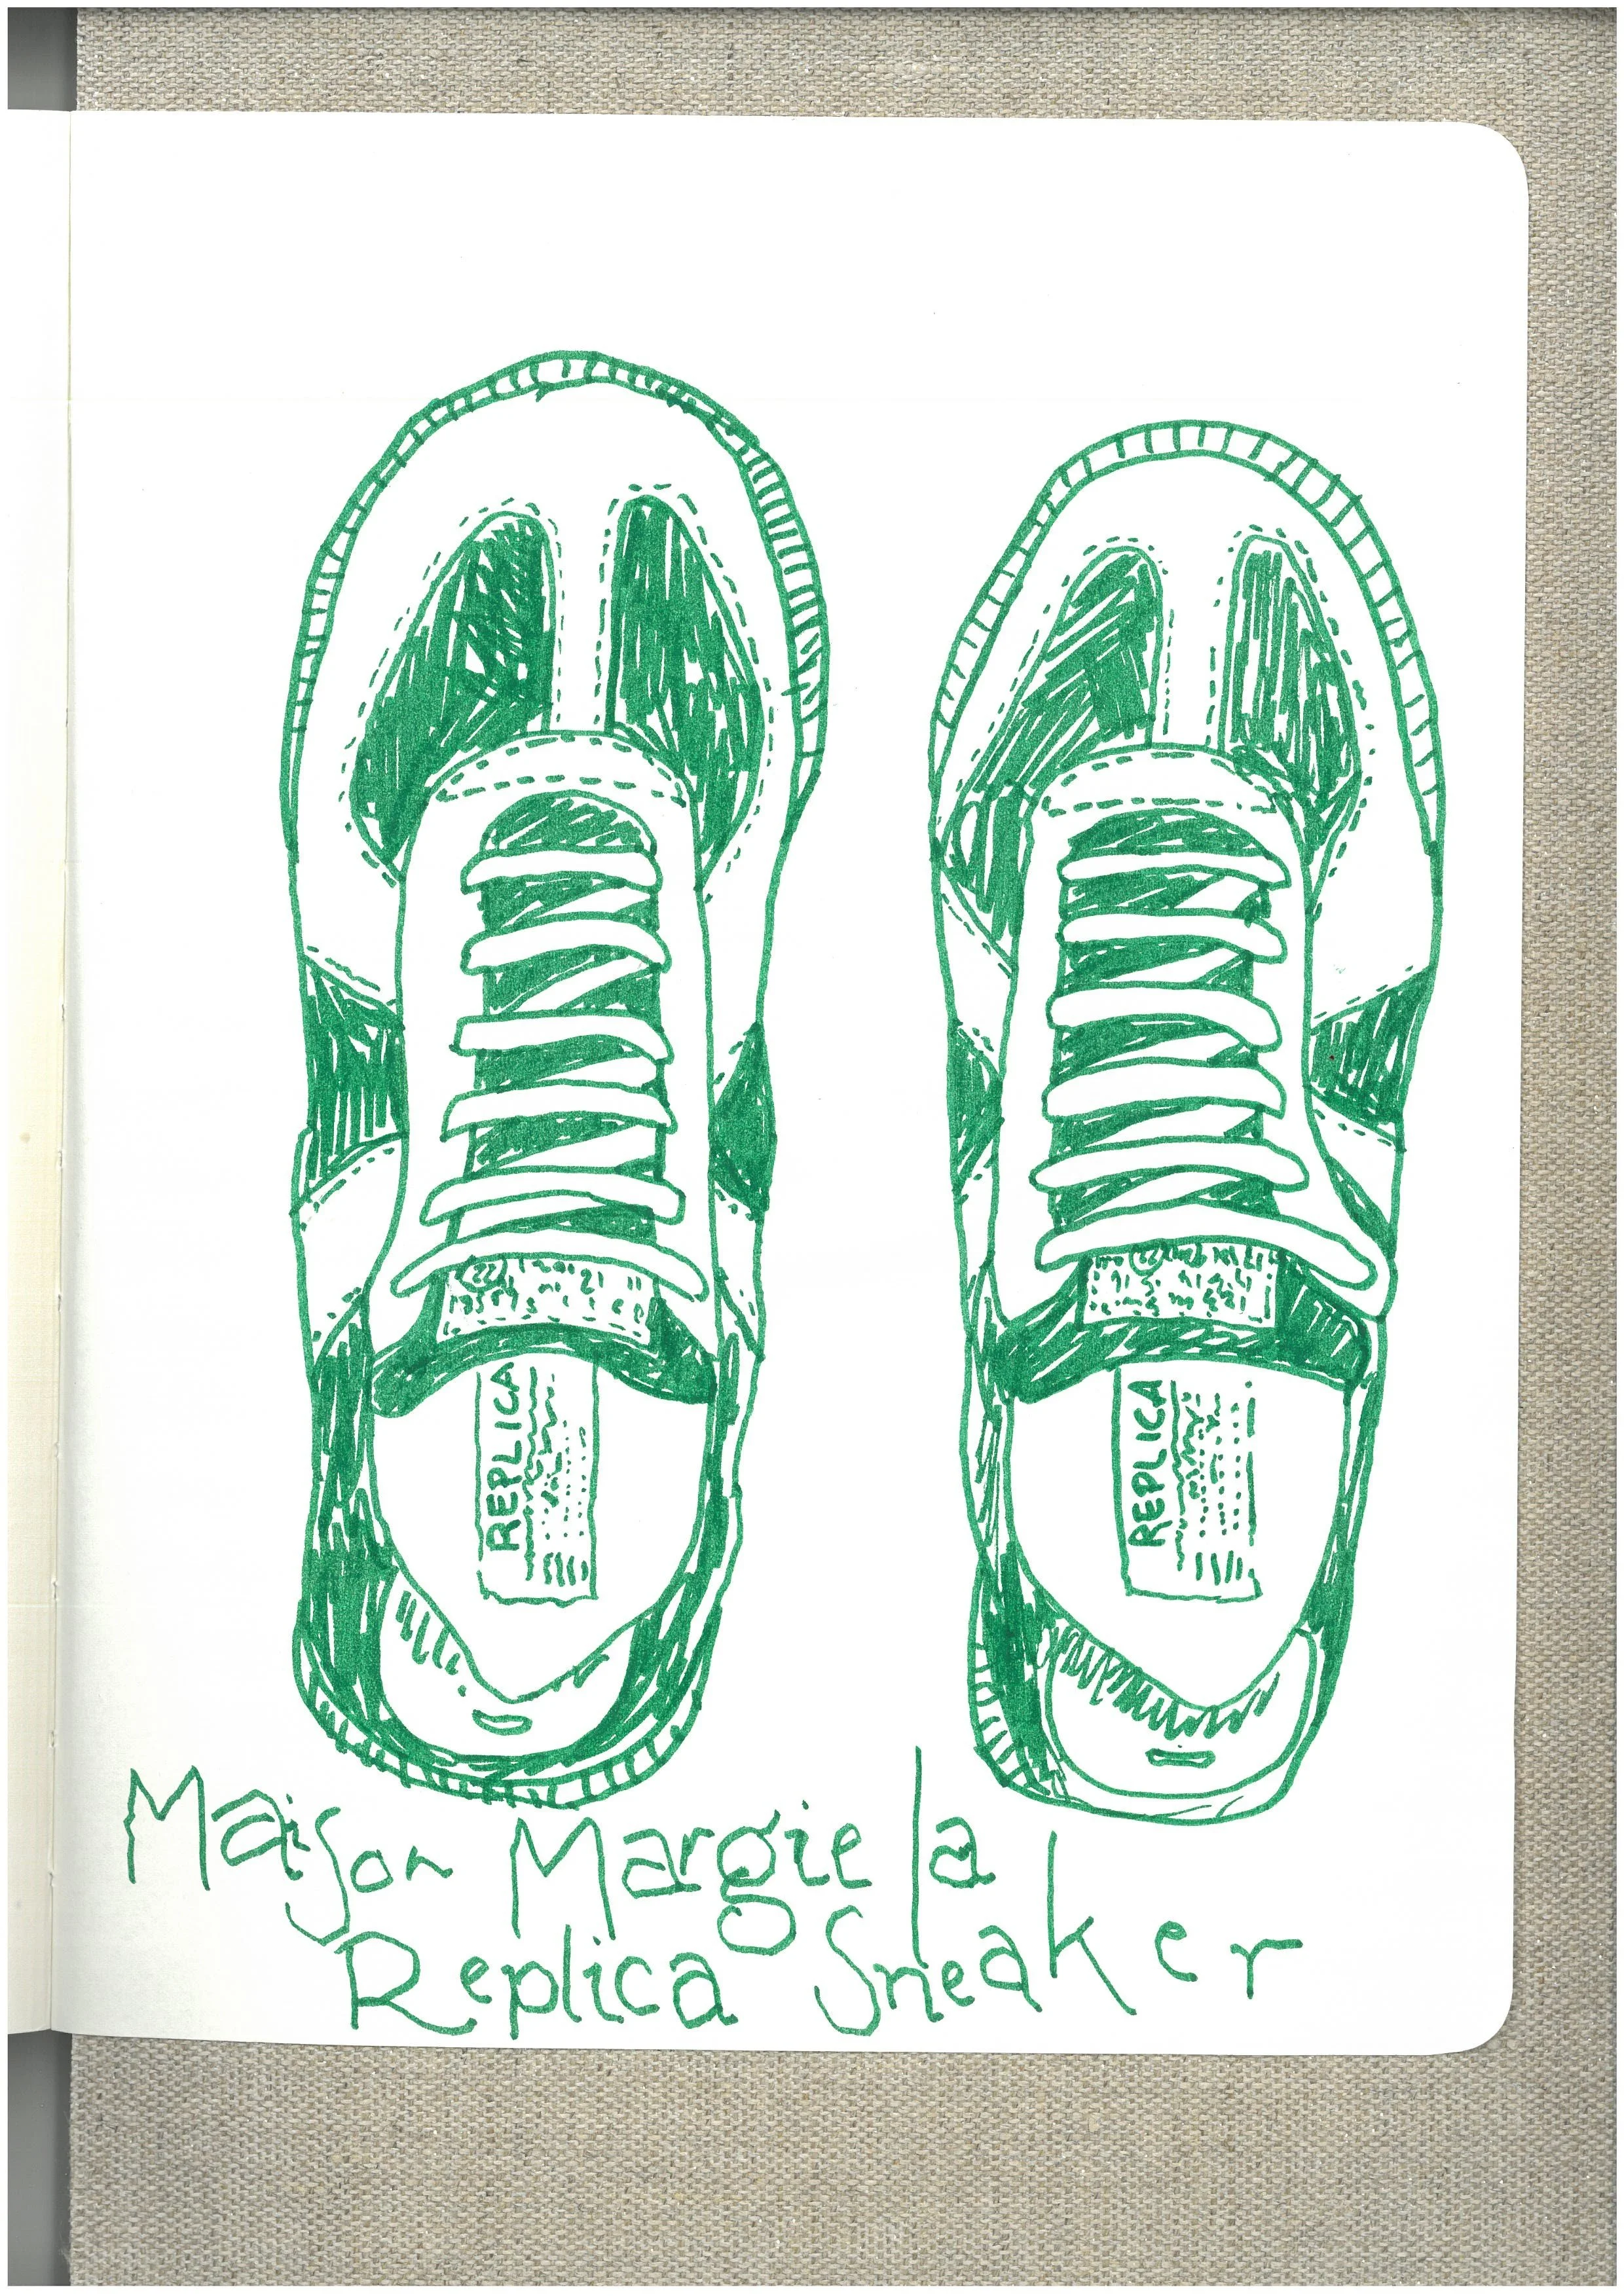 22
22
REPLICA
REPLICA
Maison Margiela
Replica Sneaker